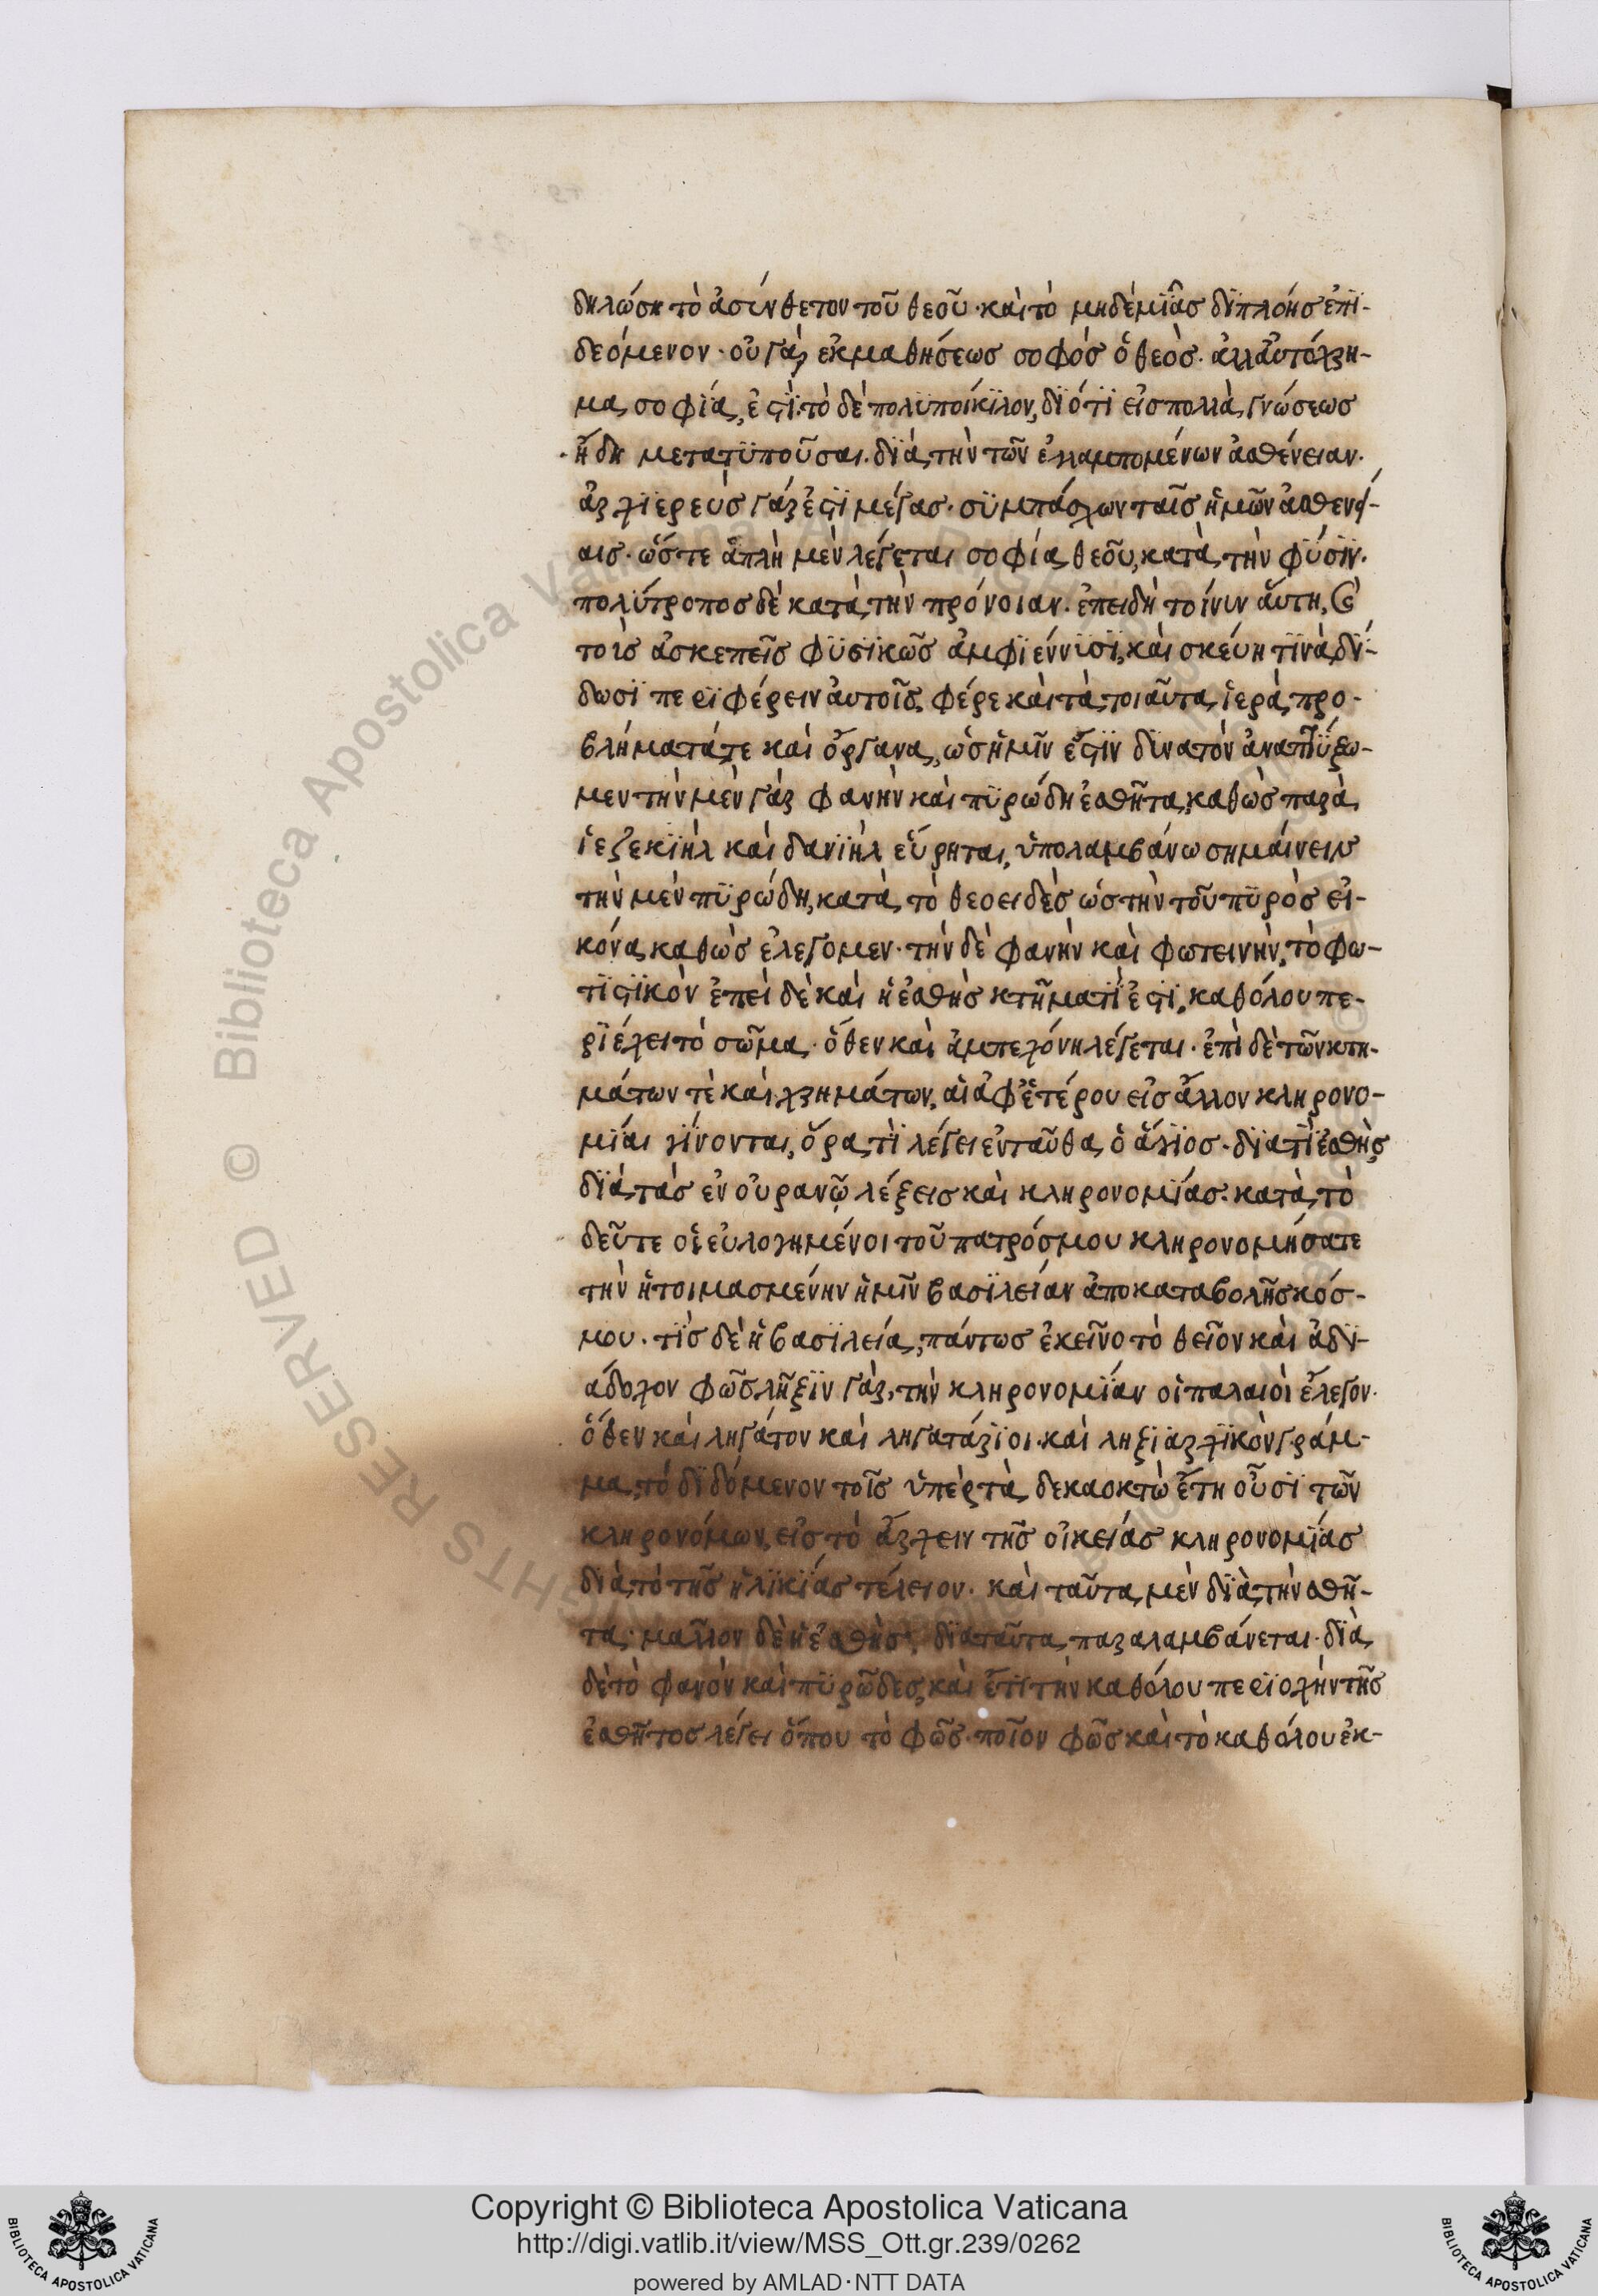 δηλώση τὸ ἀσύνθετον τοῦ θεοῦ· καὶ τὸ μηδέμϊᾶς διπλόης ἐπϊ-
δεόμενον· οὐ γὰρ ἐκμαθήσεως σοφός ὁ θεὸς· ἀλλ' αὐτόχρη-
μα σοφΐα ἐστΐ· τὸ δὲ πολϋποίκϊλον, δϊότϊ εἰς πολλὰ γνώσεως
ἤδη μετατϋποῦσαι· δϊὰ τὴν τῶν ἐλλαμπομένων ἀσθένειαν·
ἀρχϊερεὺς γάρ ἐστϊ μέγας· σϋμπάσχων ταῖς ἡμῶν ἀσθενεί-
αις· ὥστε ἁπλὴ μὲν λέγεται σοφία θεοῦ, κατὰ τὴν φΰσϊν·
πολύτροπος δὲ κατὰ τὴν πρόνοιαν· ἐπειδὴ τοίνυν αὕτη, καὶ
τοὶς ἀσκεπεῖς φϋσϊκῶς ἀμφϊέννϋσϊ, καὶ σκέυη τϊνὰ δϊ-
δωσϊ περϊφέρειν ἀυτοῖς, φέρε καὶ τὰ τοιαῦτα ἱερὰ προ-
βλήματά τε καὶ ὄργανα, ὡς ἡμῖν ἐστϊν δϋνατόν ἀναπτΰξω-
μεν τὴν μὲν γὰρ φανὴν καὶ πϋρώδη ἐσθῆτα, καθὼς παρὰ
ἱεζεκϊὴλ καὶ δανϊὴλ εὕρηται, ὑπολαμβάνω σημαίνειν
τὴν μὲν πϋρώδη, κατὰ τὸ θεοειδὲς ὡς τὴν τοῦ πϋρὸς εἰ-
κόνα καθὼς ἐλέγομεν· τὴν δὲ φανὴν καὶ φωτεινὴν, τὸ φω-
τϊστϊκὸν ἐπεὶ δὲ καὶ ἡ ἐσθὴς κτῆμα τΐ ἐστϊ, καθόλου πε-
ρϊέχει τὸ σῶμα· ὅθεν καὶ ἀμπεχόνη λέγεται· ἐπὶ δὲ τῶν κτη-
μάτων τὲ καὶ χρημάτων, αἱ ἀφ' ἑτέρου εἰς ἄλλον κληρονο-
μΐαι γίνονται, ὅρα τϊ λέγει ἐνταῦθα ὁ ἅγϊος· δϊατΐ ἐσθὴς
δϊὰ τὰς ἐν οὐρανῷ λέξεις καὶ κληρονομΐας· κατὰ τὸ
δεῦτε οἱ εὐλογημένοι τοῦ πατρός μου κληρονομήσατε
τὴν ἡτοιμασμένην ἡμῖν βασϊλείαν ἀπο καταβολῆς κόσ-
μου· τϊς δὲ ἡ βασϊλεία, πάντως ἐκεῖνο τὸ θεῖον καὶ ἀδϊ-
άδοχον φῶς λῆξϊν γὰρ, τὴν κληρονομΐαν οἱ παλαιοὶ ἔλεγον·
ὅθεν καὶ ληγάτον καὶ ληγατάρϊοι· καὶ ληξϊαρχϊκὸν γράμ-
μα, τὸ δϊδόμενον τοῖς ὑπὲρ τὰ δεκαοκτὼ ἔτη οὖσϊ τῶν
κληρονόμων, εἰς τὸ ἄρχειν τῆς οἰκείας κληρονομΐας
δϊὰ τὸ τῆς ἡλϊκΐας τέλειον· καὶ ταῦτα μὲν δϊὰ τὴν σθῆ-
τα· μᾶλλον δὲ ἡ ἐσθὴς, δϊα ταῦτα παραλαμβάνεται· δϊὰ
δὲ τὸ φανὸν καὶ πϋρῶδες, καὶ ἔτϊ τὴν καθόλου περϊοχὴν τῆς
ἐσθῆτος λέγει ὅπου τὸ φῶς· ποῖον φῶς καὶ τὸ καθόλου ἐκ-
Copyright © Biblioteca Apostolica Vaticana
http://digi.vatlib.it/view/MSS_Ott.gr.239/0262
powered by AMLAD·NTT DATA
BIBLIOTECA APOSTOLICA VATICANA
BIBLIOTECA APOSTOLICA VATICANA